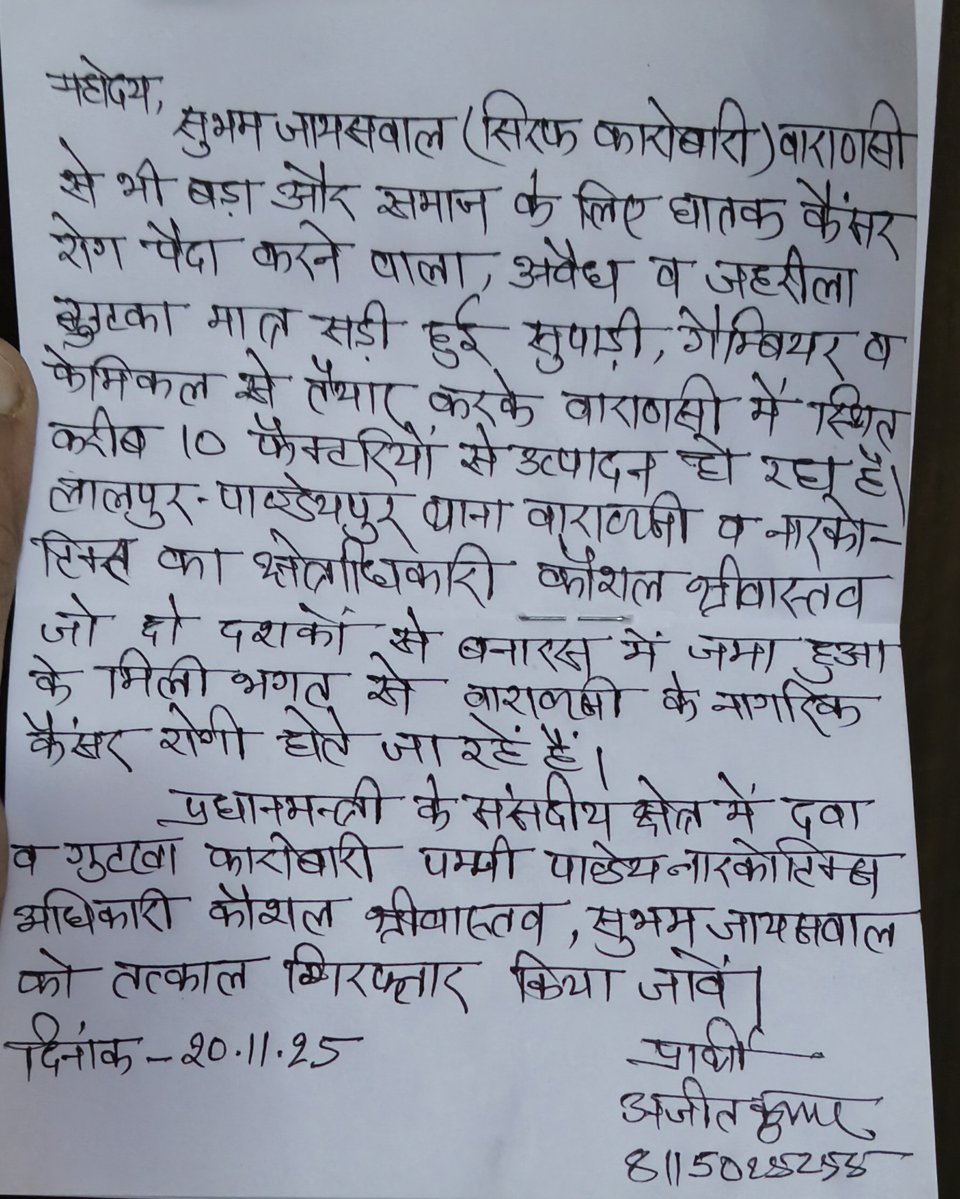 महोदय,
सुभम जायसवाल (सिरफ कारोबारी) वाराणसी
से भी बड़ा और समाज के लिए घातक कैंसर
रोग पैदा करने वाला, अवैध व जहरीला
गुटका मात्र सड़ी हुई सुपाड़ी, गैम्बियर व
केमिकल से तैयार करके वाराणसी में स्थित
करीब 10 फैक्टरियों से उत्पादन हो रहा है।
लालपुर-पाण्डेयपुर थाना वाराणसी व नारको-
टिक्स का क्षेत्राधिकारी कौशल श्रीवास्तव
जो दो दशकों से बनारस में जमा हुआ
के मिली भगत से वाराणसी के नागरिक
कैंसर रोगी होते जा रहें हैं।
प्रधानमन्त्री के संसदीय क्षेत्र में दवा
व गुटखा कारोबारी पम्मी पाण्डेय नारकोटिक्स
अधिकारी कौशल श्रीवास्तव, सुभम जायसवाल
को तत्काल गिरफ्तार किया जावें।
दिनांक - 20.11.25
प्रार्थी
अजीत कुमार